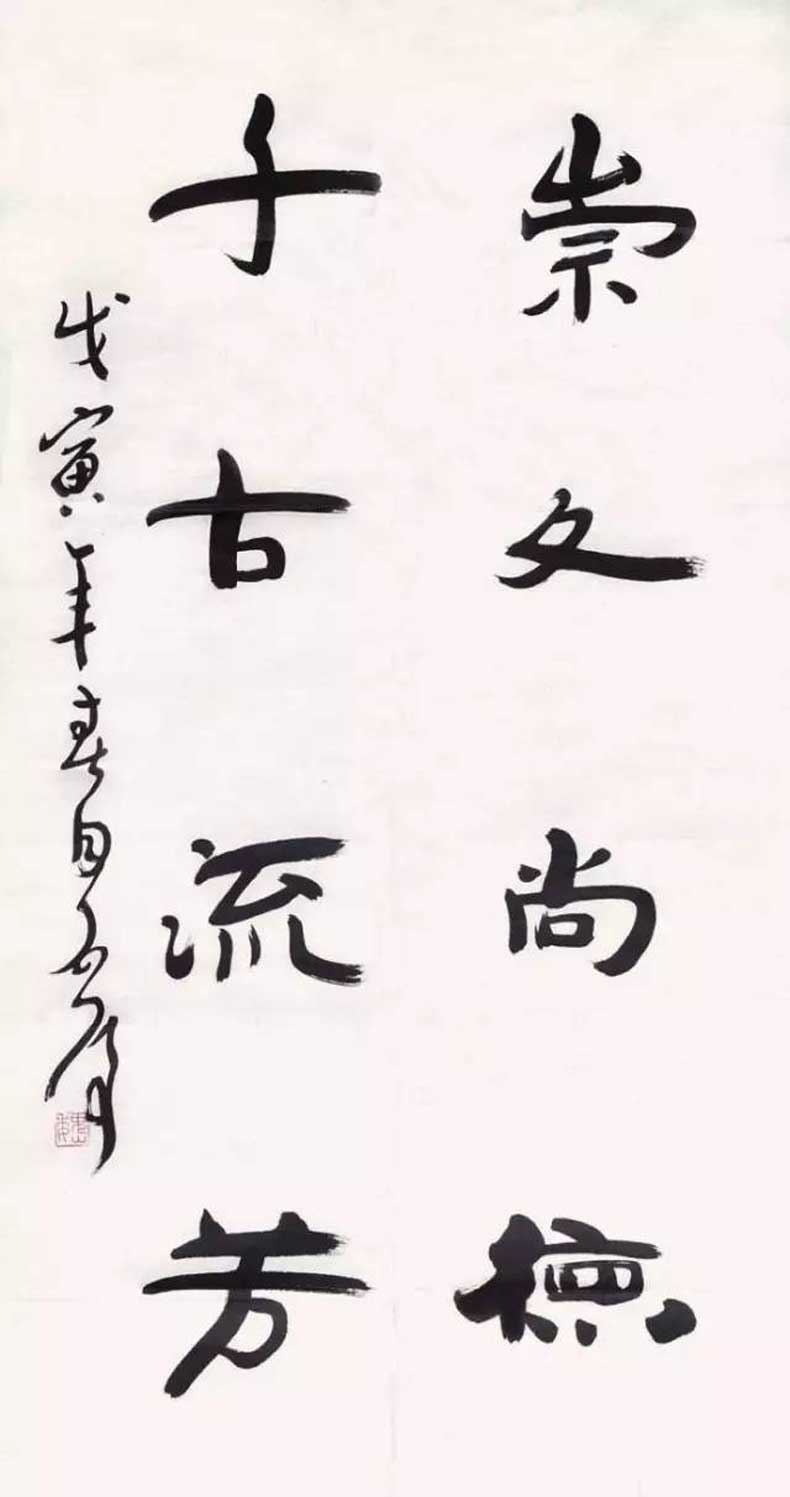 崇文尚德
千古流芳
戊寅年春月